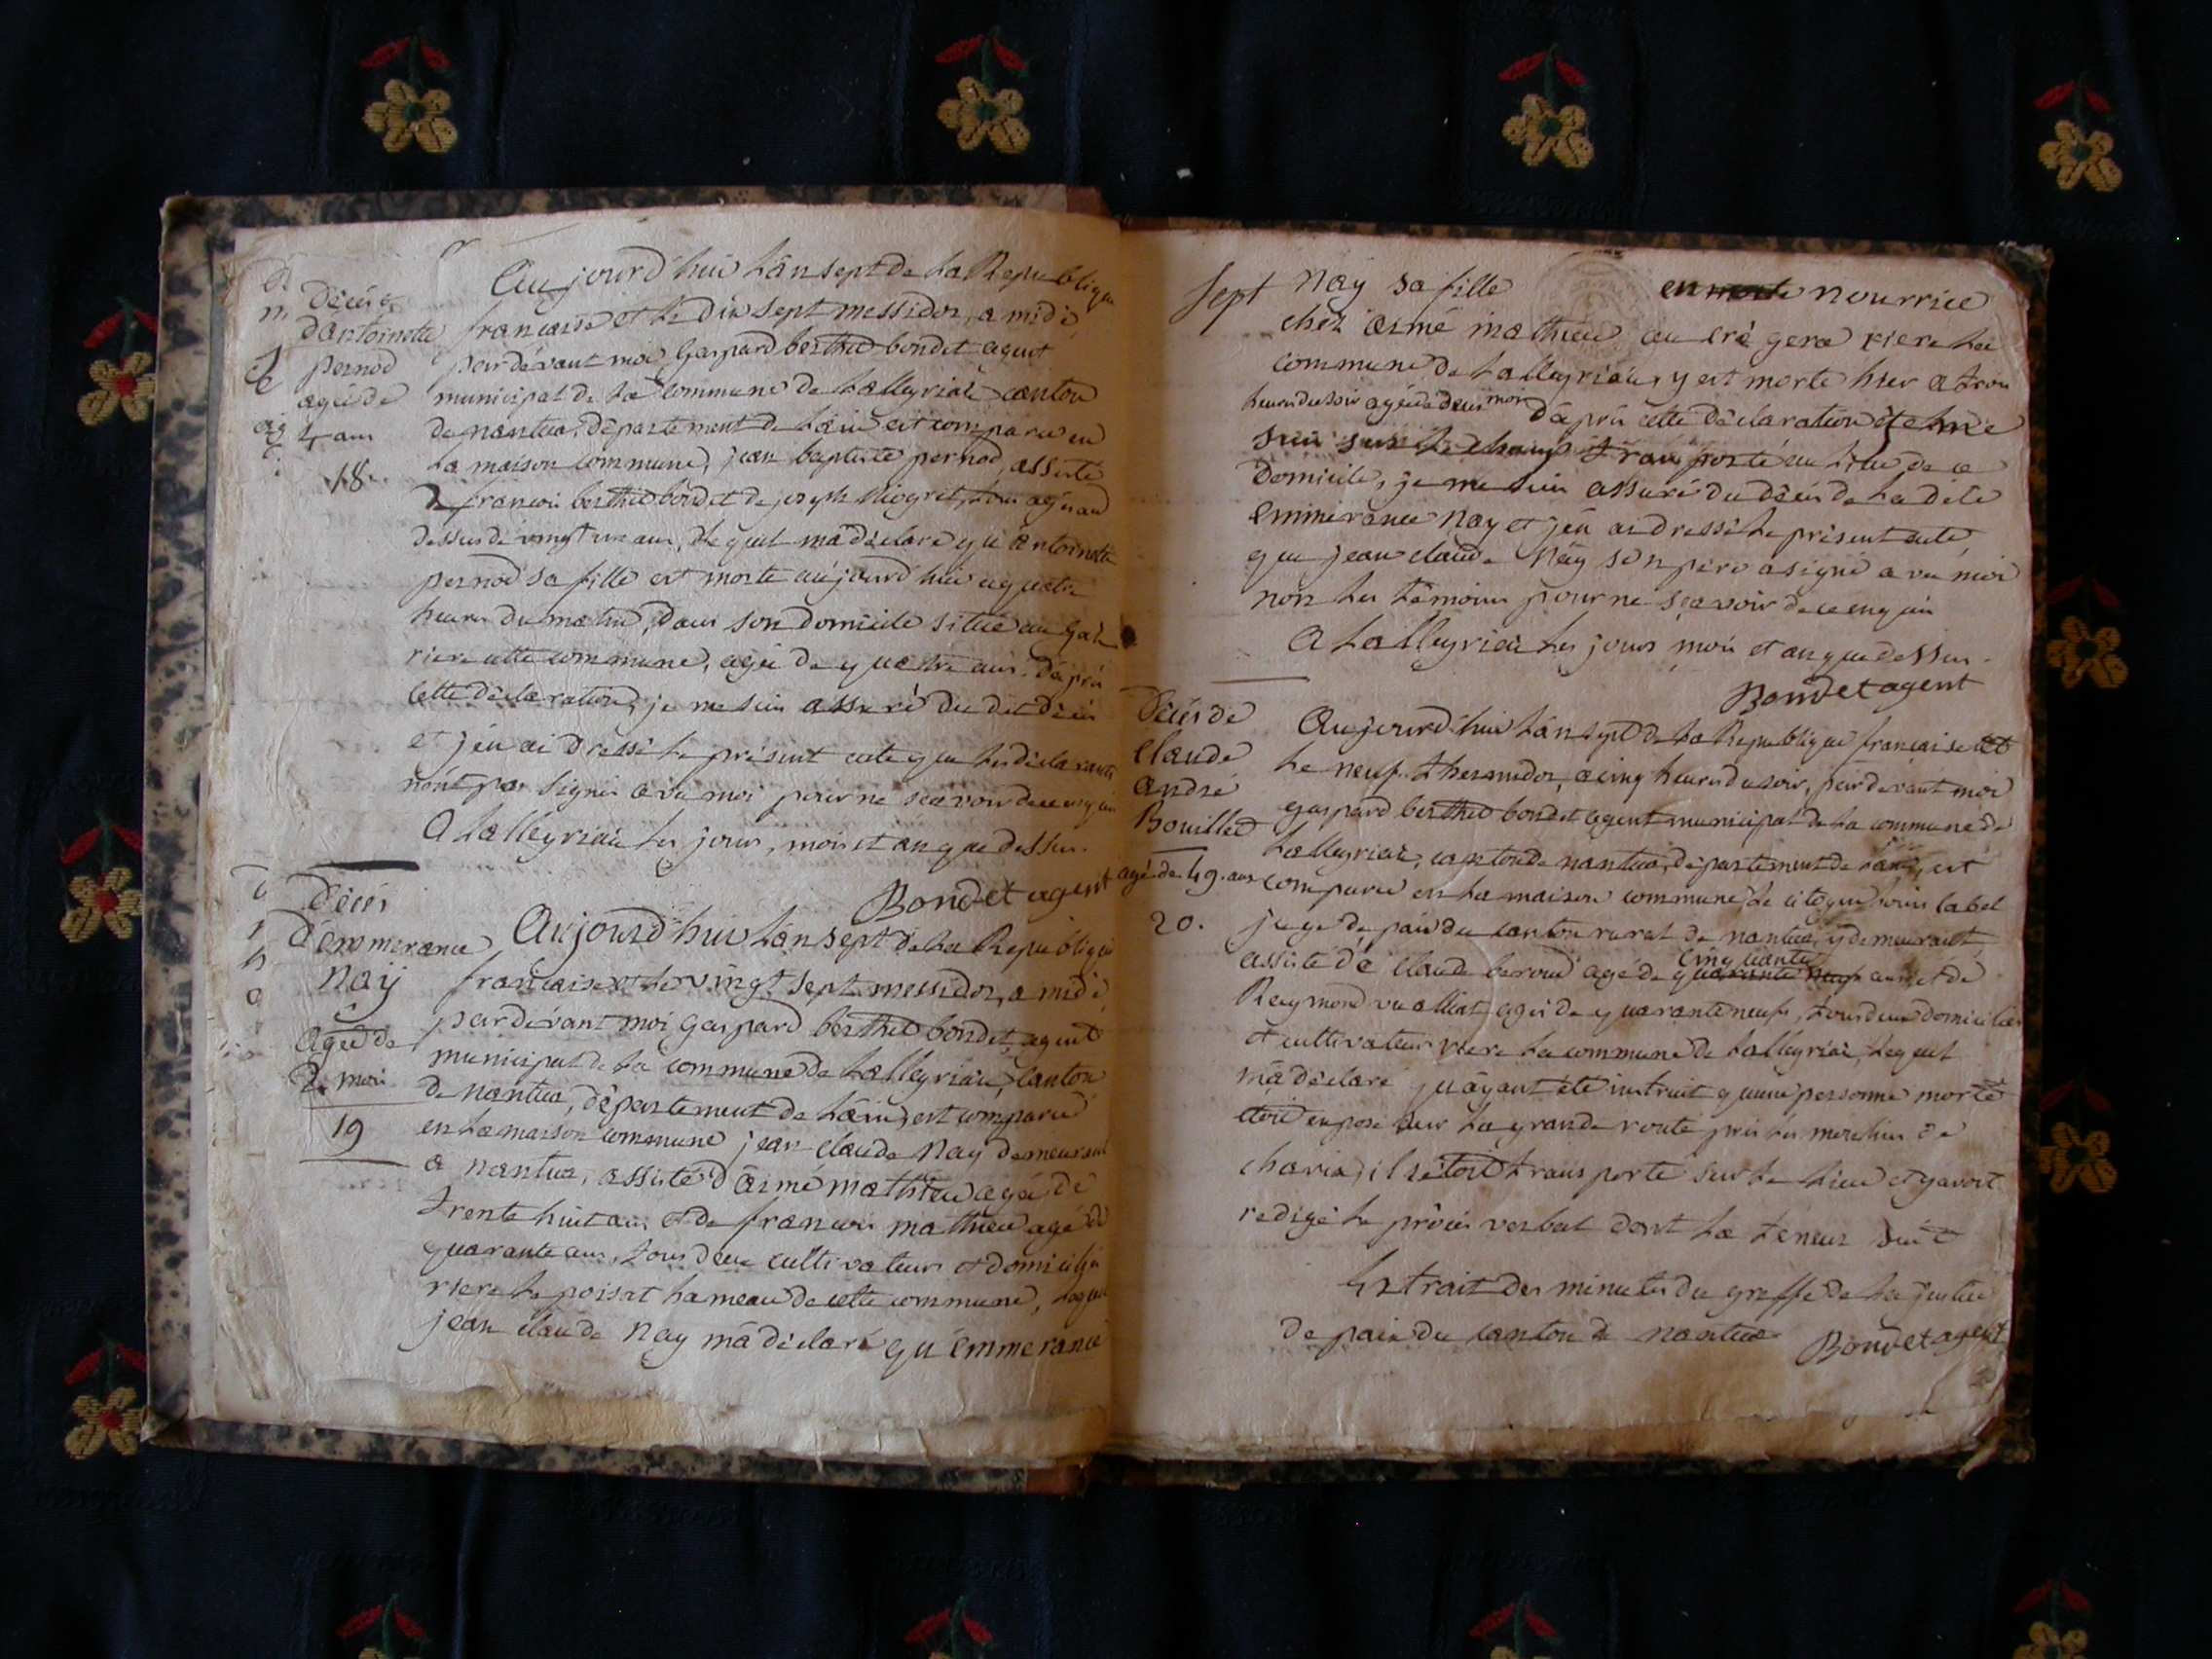 Décès
d'antoinette
pernod
agée de
4 ans
18.
Aujourd'hui l'an sept de la Republique
francaise et le dix sept messidor, a midi
pardevant moi Gaspard berthet bondet agent
municipal de la commune de Lalleyriat canton
de nantua, département de l'ain est comparu en
la maison commune, jean baptiste pernod, assisté
de francois berthet bondet de joseph niogret, tous agés au
dessus de vingt un ans, lequel m'a déclaré qu'antoinette
pernod sa fille est morte aujourd'hui a quatre
heures du matin, dans son domicile situé au
riere cette commune, agée de quatre ans. d'après
cette déclaration, je me suis assuré du dit décès
et j'en ai dressé le présent acte que les déclarants
n'ont pas signés avec moi pour ne sçavoir de ce enquis
A Lalleyriat les jours, mois et an que dessus.
Bondet agent
Décès
d'emmerance
Nay
Agée de
2 mois
19
Aujourd'hui l'an sept de la Republique
francaise et le vingt sept messidor, a midi
pardevant moi Gaspard berthet bondet, agent
municipal de la commune de Lalleyriat, canton
de nantua, département de l'ain, est comparu
en la maison commune jean claude Nay demeurant
a nantua, assisté d'aimé mathieu agé de
trente huit ans et de francois mathieu agé de
quarante ans, tous deux cultivateurs et domiciliés
riere le poisat hameau de cette commune, lequel
jean claude Nay m'a déclaré qu'emmerance
Sept
Nay sa fille en nourrice
chez aimé mathieu au riere la
commune de Lalleyriat, y est morte hier a trois
heures du soir agée de deux mois d'après cette déclaration je me
suis sur le champ transporté au lieu de ce
domicile, je me suis assuré du décès de la dite
emmerance Nay et j'en ai dressé le présent acte,
que jean claude Nay son père a signé avec moi
non les témoins pour ne sçavoir de ce enquis
A Lalleyriat les jours mois et an que dessus.
Bondet agent
Décès de
Claude
André
Bouillet
agé de 49. ans
20.
Aujourd'hui l'an sept de la Republique francaise et
le neuf thermidor, a cinq heures du soir, pardevant moi
gaspard berthet bondet agent municipal de la commune de
Lalleyriat, canton de nantua, département de l'ain, est
comparu en la maison commune, le citoyen label
juge de paix du canton rural de nantua, y demeurant
assisté de claude beroud agé de cinquante ans et de
Raymond agé de quarante neuf, tous deux domiciliés
et cultivateurs riere la commune de Lalleyriat, lequel
m'a déclaré qu'ayant été instruit q'une personne morte
etoit exposé sur la grande route près les moulins de
charix, il s'étoit transporté sur le lieu et y avoit
redigé le procès verbal dont la teneur suit
Extrait des minutes du greffe de la justice
de paix du canton de nantua Bondet agent